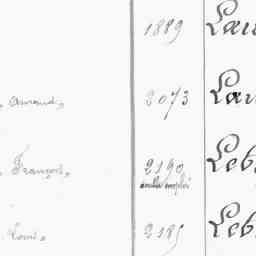 1889 Lau
Armand, 2073 Lau
François, 2190 Leb
double emploi
Louis, 2185 Leb